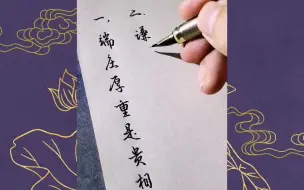 一、端庄厚重是貴相
二、谦